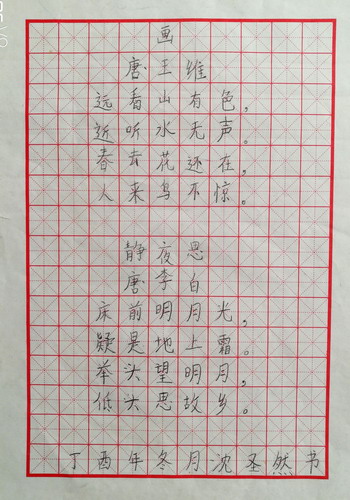 画
唐 王维
远看山有色，
近听水无声。
春去花还在，
人来鸟不惊。
静夜思
唐 李白
床前明月光，
疑是地上霜。
举头望明月，
低头思故乡。
丁酉年冬月沈圣然书